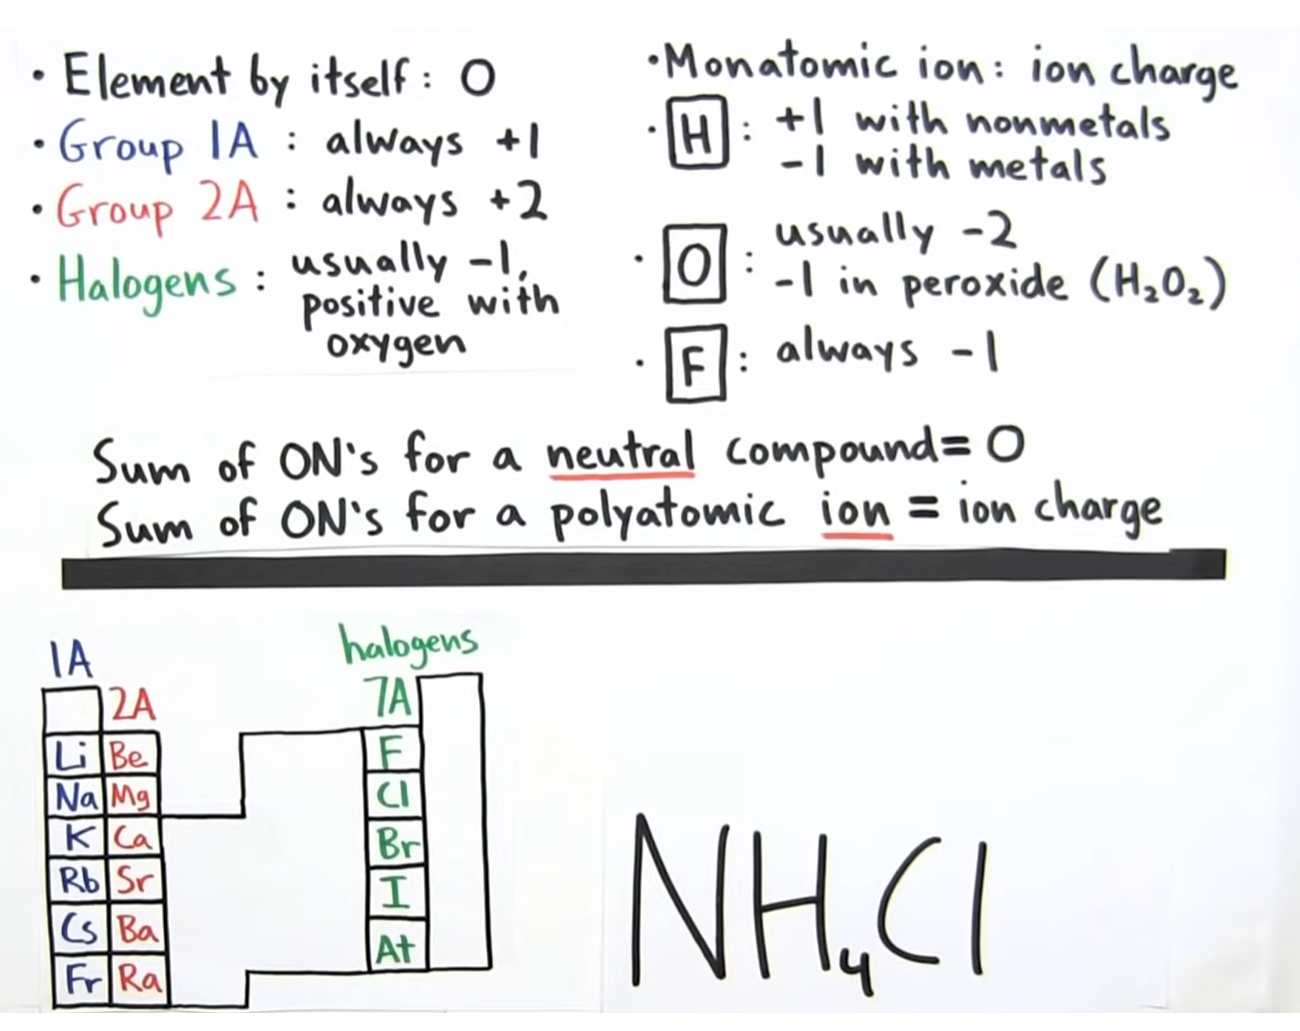 • Element by itself: 0
• Group 1A : always +1
• Group 2A : always +2
• Halogens : usually -1,
positive with
oxygen
• Monatomic ion: ion charge
• H : +1 with nonmetals
-1 with metals
• O : usually -2
-1 in peroxide (H₂O₂)
• F : always -1
Sum of ON's for a neutral compound = 0
Sum of ON's for a polyatomic ion = ion charge
1A
2A
halogens
7A
Li Be F
Na Mg Cl
K Ca Br
Rb Sr I
Cs Ba At
Fr Ra
NH₄Cl